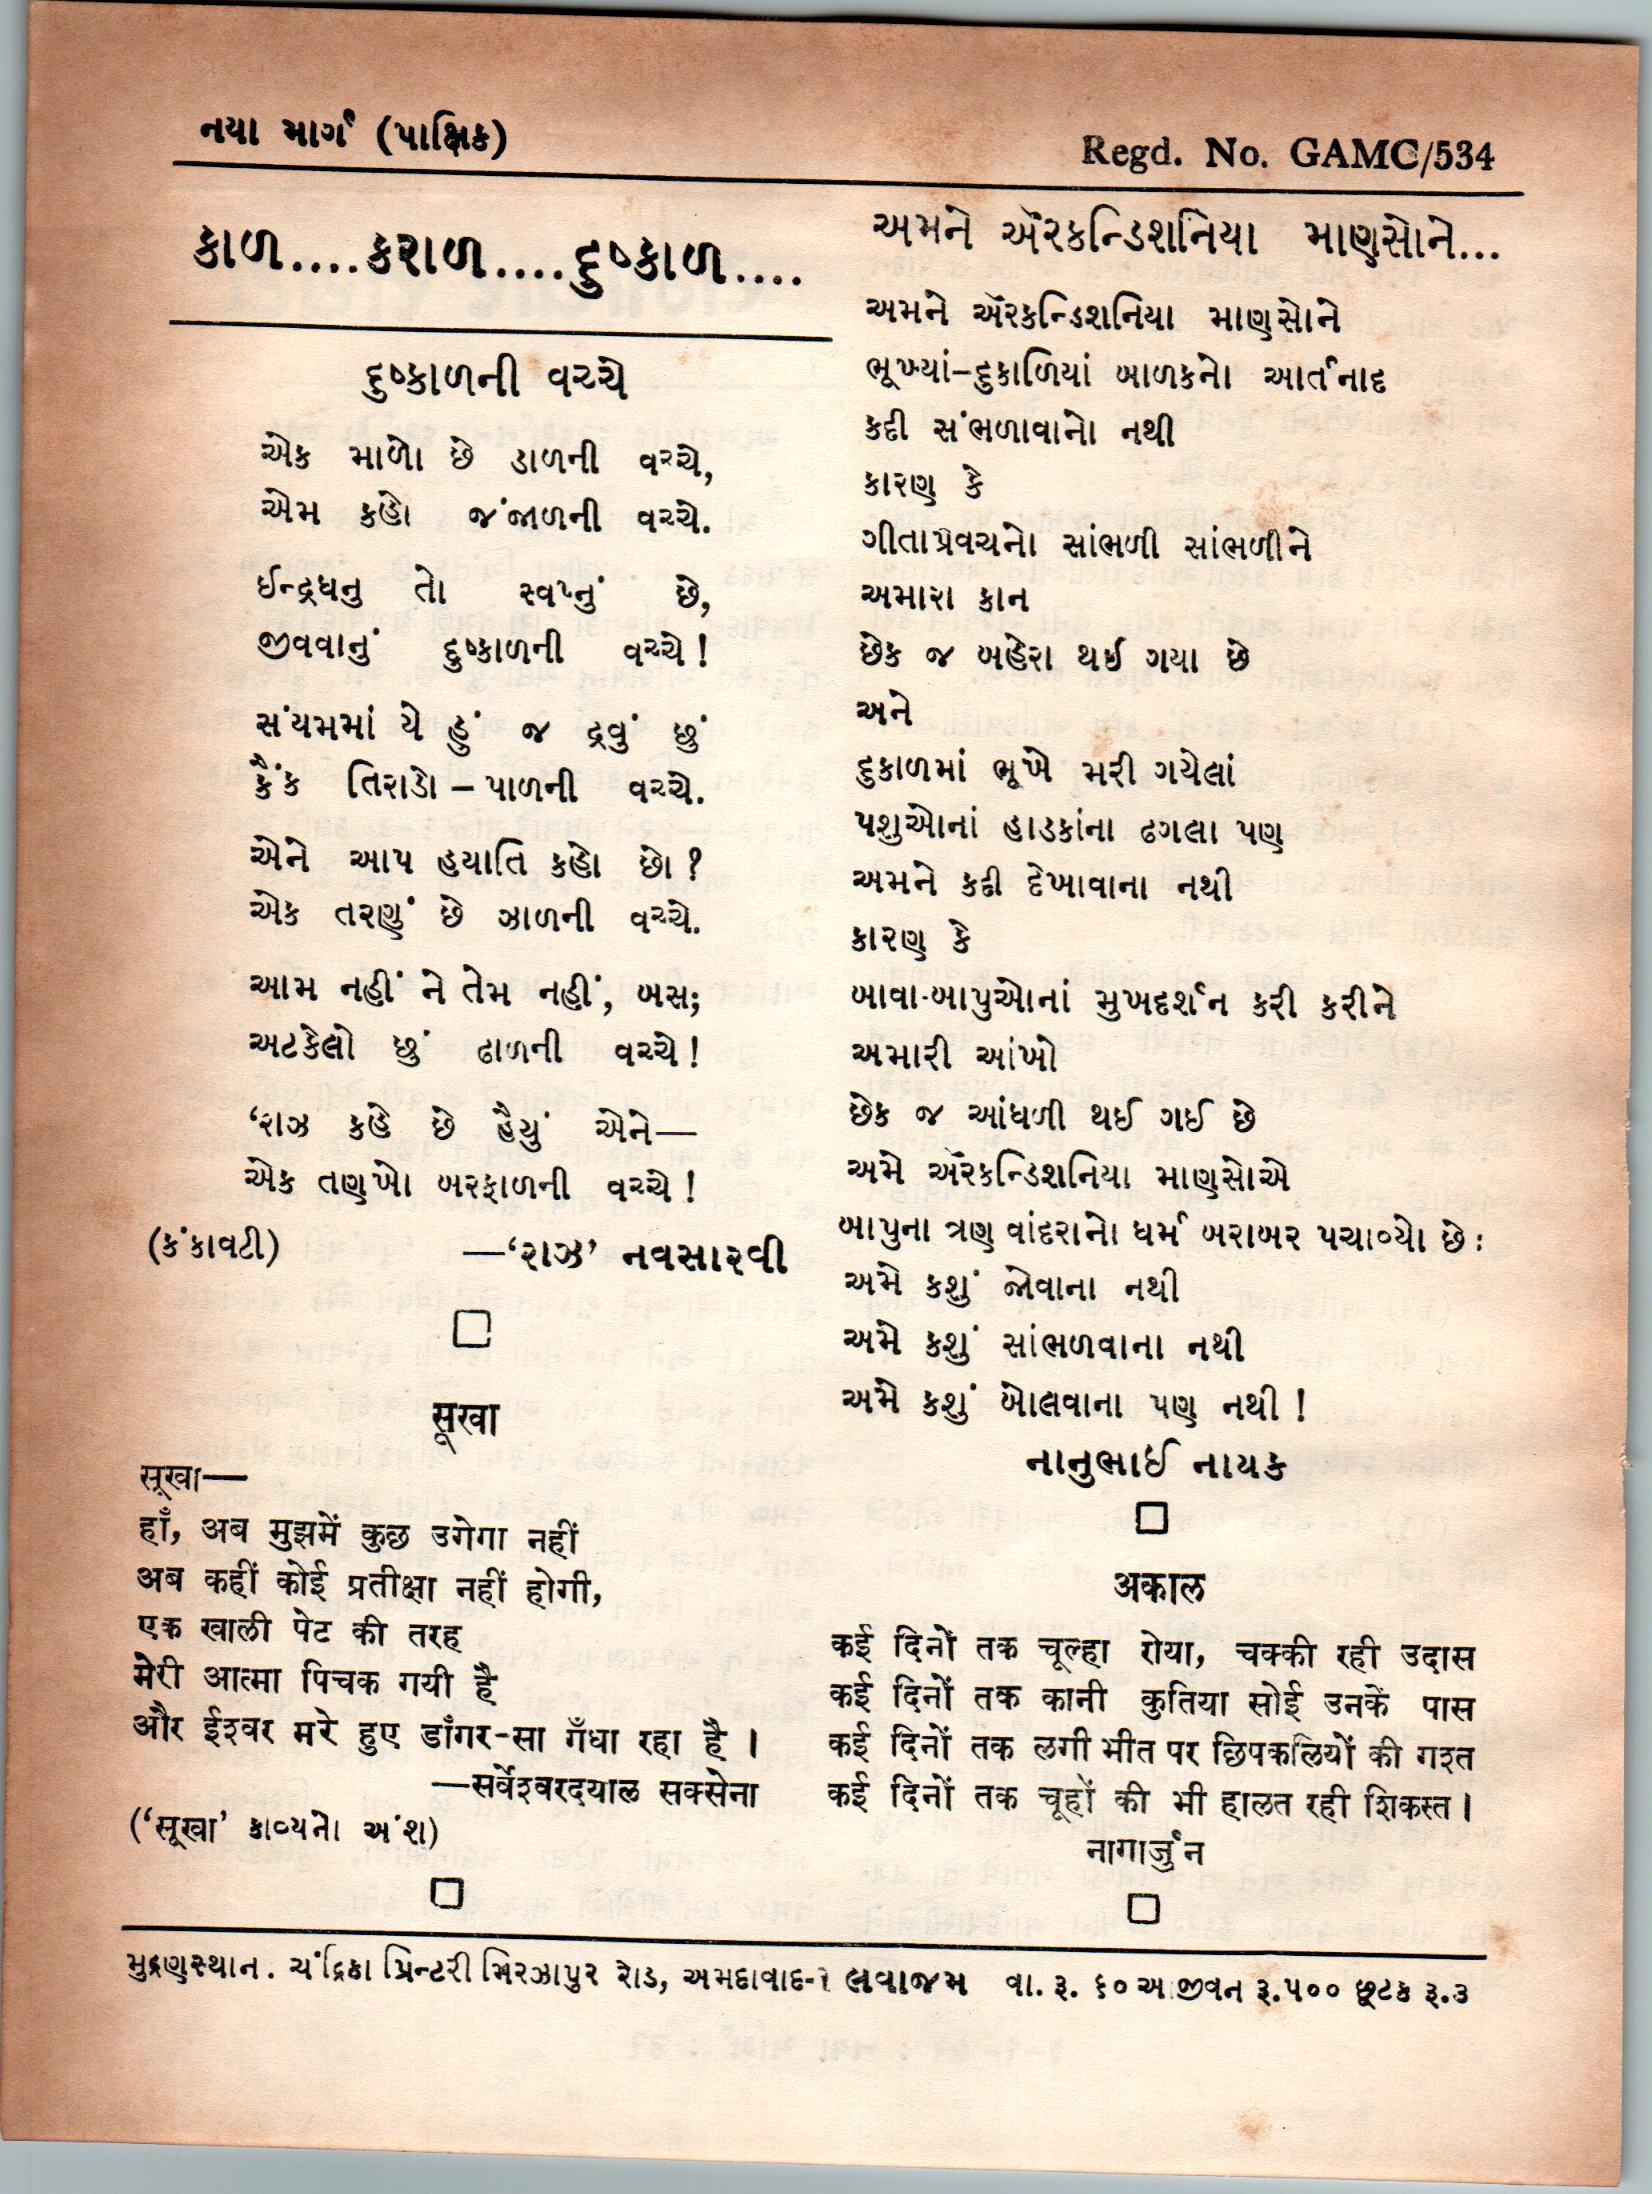 નયા માર્ગ (પાક્ષિક)
Regd. No. GAMC/534
કાળ....કરાળ....દુષ્કાળ....
દુષ્કાળની વચ્ચે
એક માળો છે ડાળની વચ્ચે,
એમ કહો જંજાળની વચ્ચે.
ઈન્દ્રધનુ તો સ્વપ્નું છે,
જીવવાનું દુષ્કાળની વચ્ચે!
સંયમમાં યે હું જ દ્રવું છું
કૈંક તિરાડો – પાળની વચ્ચે.
એને આપ હયાતિ કહો છો?
એક તરણું છે ઝાળની વચ્ચે.
આમ નહીં ને તેમ નહીં, બસ;
અટકેલો છું ઢાળની વચ્ચે!
‘રાઝ કહે છે હૈયું એને—
એક તણખો બરફાળની વચ્ચે!
(કંકાવટી) —‘રાઝ’ નવસારવી
सूखा
सूखा—
हाँ, अब मुझमें कुछ उगेगा नहीं
अब कहीं कोई प्रतीक्षा नहीं होगी,
एक खाली पेट की तरह
मेरी आत्मा पिचक गयी है
और ईश्वर मरे हुए डाँगर-सा गँधा रहा है ।
—सर्वेश्वरदयाल सक्सेना
(‘सूखा’ કાવ્યનો અંશ)
અમને ઍરકન્ડિશનિયા માણસોને...
અમને ઍરકન્ડિશનિયા માણસોને
ભૂખ્યાં–દુકાળિયાં બાળકનો આર્તનાદ
કદી સંભળાવાનો નથી
કારણ કે
ગીતાપ્રવચનો સાંભળી સાંભળીને
અમારા કાન
છેક જ બહેરા થઈ ગયા છે
અને
દુકાળમાં ભૂખે મરી ગયેલાં
પશુઓનાં હાડકાંના ઢગલા પણ
અમને કદી દેખાવાના નથી
કારણ કે
બાવા-બાપુઓનાં મુખદર્શન કરી કરીને
અમારી આંખો
છેક જ આંધળી થઈ ગઈ છે
અમે ઍરકન્ડિશનિયા માણસોએ
બાપુના ત્રણ વાંદરાનો ધર્મ બરાબર પચાવ્યો છે:
અમે કશું જોવાના નથી
અમે કશું સાંભળવાના નથી
અમે કશું બોલવાના પણ નથી!
નાનુભાઈ નાયક
अकाल
कई दिनों तक चूल्हा रोया, चक्की रही उदास
कई दिनों तक कानी कुतिया सोई उनकें पास
कई दिनों तक लगी भीत पर छिपकलियों की गश्त
कई दिनों तक चूहों की भी हालत रही शिकस्त ।
નાગાર્જુન
મુદ્રણસ્થાન. ચંદ્રિકા પ્રિન્ટરી મિરઝાપુર રોડ, અમદાવાદ-૧ લવાજમ વા. રૂ. ૬૦ આજીવન રૂ.૫૦૦ છૂટક રૂ.૩